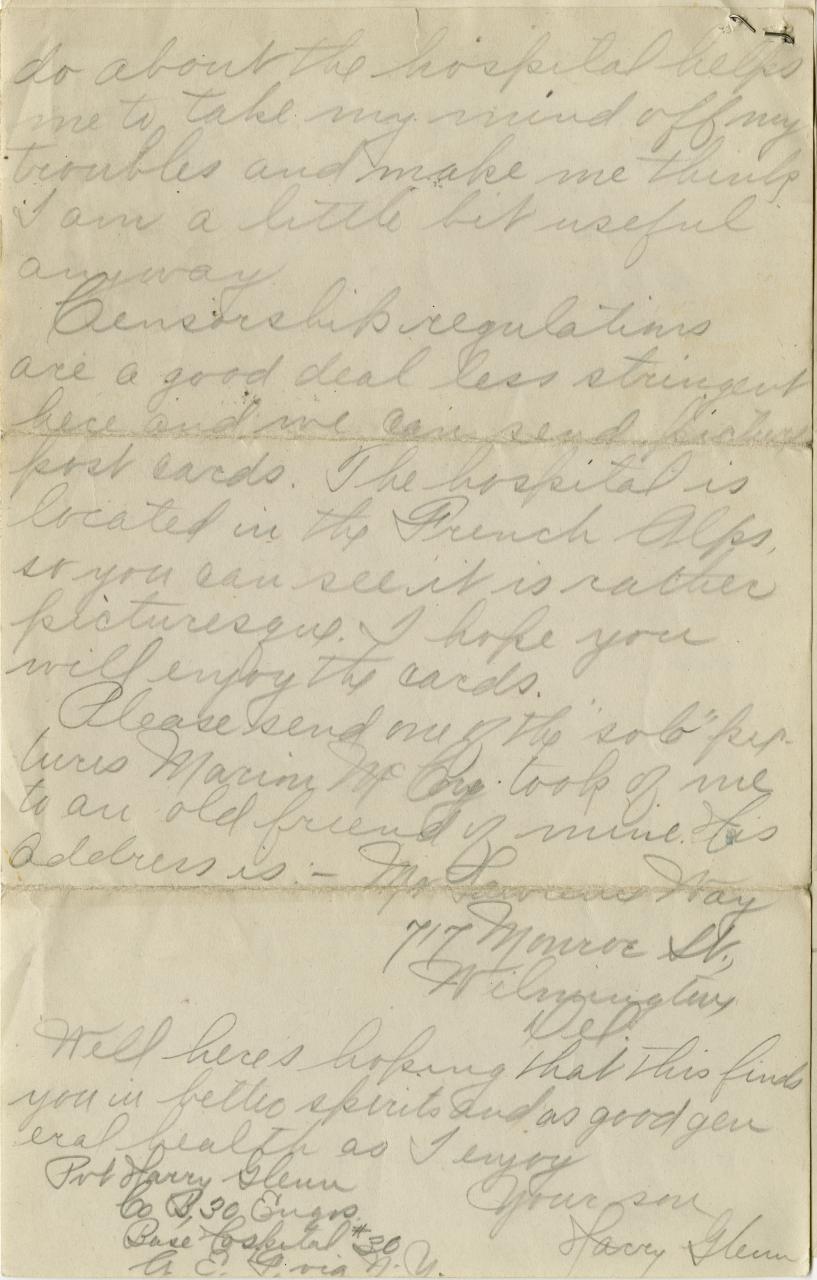 do about the hospital helps
me to take my mind off my
troubles and make me think
I am a little bit useful
anyway
Censorship regulations
are a good deal less stringent
here and we can send picture
post cards. The hospital is
located in the French Alps,
so you can see it is rather
picturesque. I hope you
will enjoy the cards.
Please send one of the "solo" pic-
tures Marion McCoy took of me
to an old friend of mine. His
address is:- Mr Lawrence Way
717 Monroe St.,
Wilmington,
Del.
Well heres hoping that this finds
you in better spirits and as good gen
eral health as I enjoy
Your son
Harry Glenn
Pvt Harry Glenn
Co B, 30 Engrs.
Base Hospital #30
A. E. F. via N. Y.